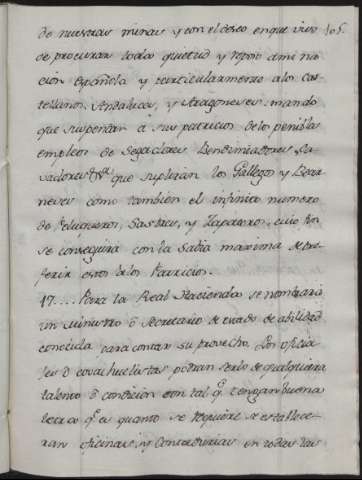 105.
de nuestras minas y con el deseo en que vivo
de procurar toda quietud y reposo a mi na
cion Española y particularmente a los Cas
tellanos, Andaluces, y Aragoneses mando
que suspendan a sus patricios de los penibles
empleos de Segadores Bendimiadores Ca
vadores &ª que suplirán los Gallegos y Bear
neses como tambien el infinito numero
de Peluqueros, Sastres, y Zapateros, cuio fin
se conseguirá con la Sabia maxima de pre
ferir estos a los Patricios.
17.... Para la Real Hacienda se nombrará
un Ministro ó Secretario de estado de abilidad
conocida para contar su provecho. Los oficia
les ó covachuelistas podran serlo de qualquiera
talento ó condicion con tal q.e tengan buena
letra q.e es quanto se requiere se estallece
ran oficinas, y Contadurias en todas las